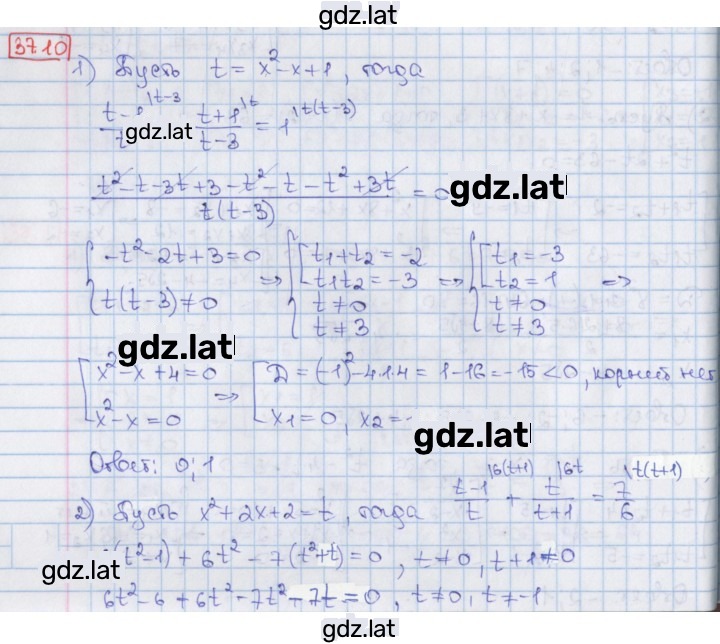 gdz.lat
3710
1) Пусть t = x² - x + 1, тогда
t-1^{\t-3} t+1^{\t}/t-3 = 1^{\t(t-3)}
gdz.lat
t² - t - 3t + 3 - t² - t - t² + 3t / t(t-3) = 0 gdz.lat
{ -t² - 2t + 3 = 0 ⇒ { [ t₁ + t₂ = -2 ⇒ { [ t₁ = -3 ⇒
t₁t₂ = -3 t₂ = 1
t(t-3) ≠ 0 t ≠ 0 t ≠ 0
t ≠ 3 t ≠ 3
gdz.lat
[ x² - x + 4 = 0 ⇒ [ D = (-1)² - 4·1·4 = 1 - 16 = -15 < 0, корней нет
x² - x = 0 x₁ = 0, x₂ =
gdz.lat
Ответ: 0; 1
2) Пусть x² + 2x + 2 = t, тогда t-1/t^{\6(t+1)} + t/t+1^{\6t} = 7/6^{\t(t+1)}
(t² - 1) + 6t² - 7(t² + t) = 0, t ≠ 0, t + 1 ≠ 0
gdz.lat
6t² - 6 + 6t² - 7t² - 7t = 0, t ≠ 0, t ≠ -1
gdz.lat